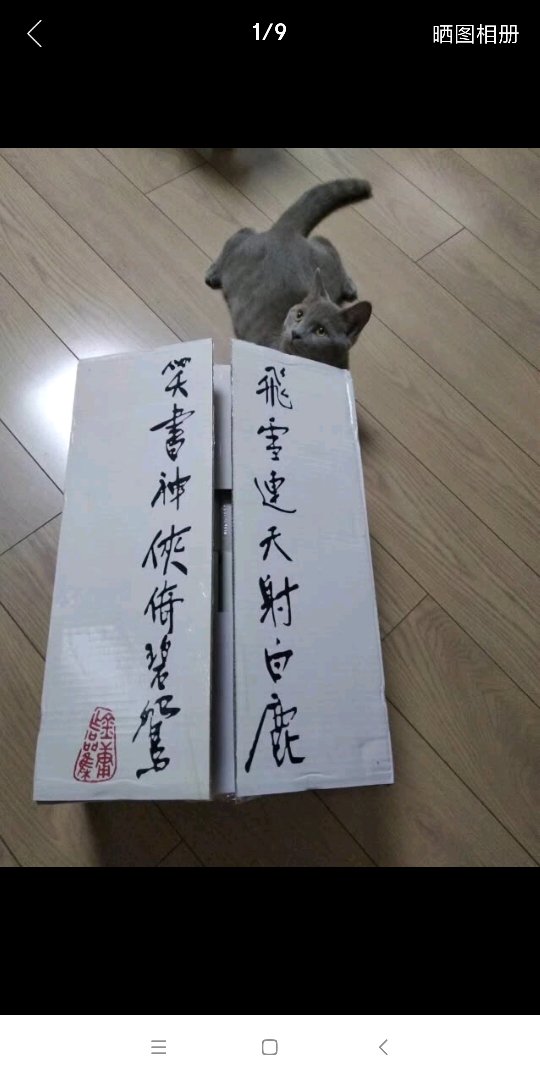 1/9
晒图相册
飛雪連天射白鹿
笑書神俠倚碧鴛
金庸作品集